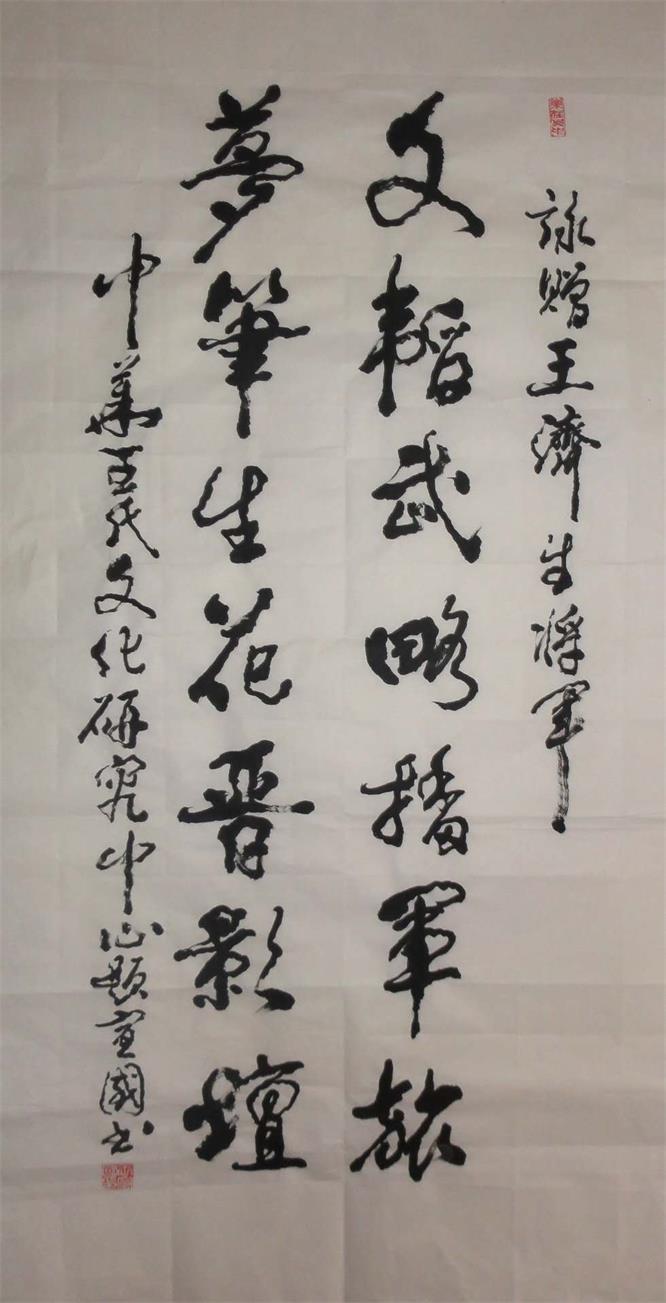 詠贈王濟生将軍
文韜武略播軍旅
夢筆生花晉影壇
中華王氏文化研究中心題宣國书